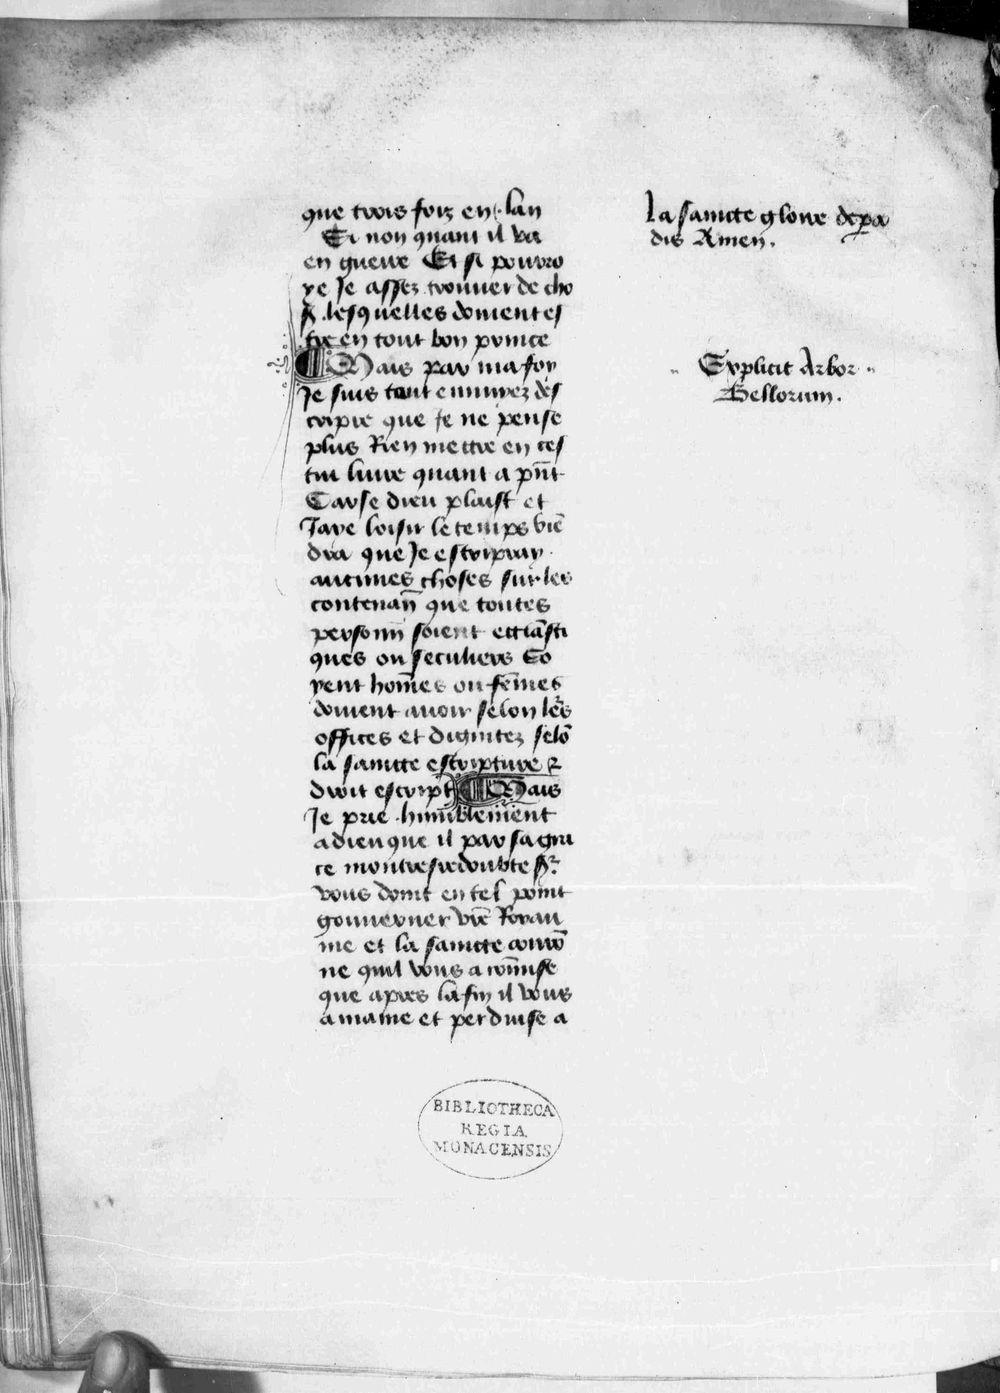 que trois foiz en lan
Et non quant il va
en guerre Et si pourro
ye Je assez trouuer de cho
ses lesquelles doiuent es
tre en tout bon prince
Mais par ma foy
Je suis tout ennuyez des
cripre que Je ne pense
plus Rien mettre en ces
tui liure quant a pñt
Car se dieu plaist et
Jaye loisir le temps viē
dra que Je escripray
aucunes choses sur les
contenan̄ que toutes
personn̄ soient eccl̄asti
ques ou seculiers So
yent hom̄es ou fem̄es
doiuent auoir selon le͛s
offices et dignitez selō
la saincte escripture &
droit escript Mais
Je prie humblement
a dieu que il par sa gra
ce mon tresredoubte sr̄
vous doint en tel point
gouuerner vr̄e Royau
me et la saincte courō
ne quil vous a com̄ise
que apres la fin il vous
amaine et perduise a
la saincte gloire de pa
dis Amen.
Explicit Arbor
Bellorum.
BIBLIOTHECA
REGIA
MONACENSIS